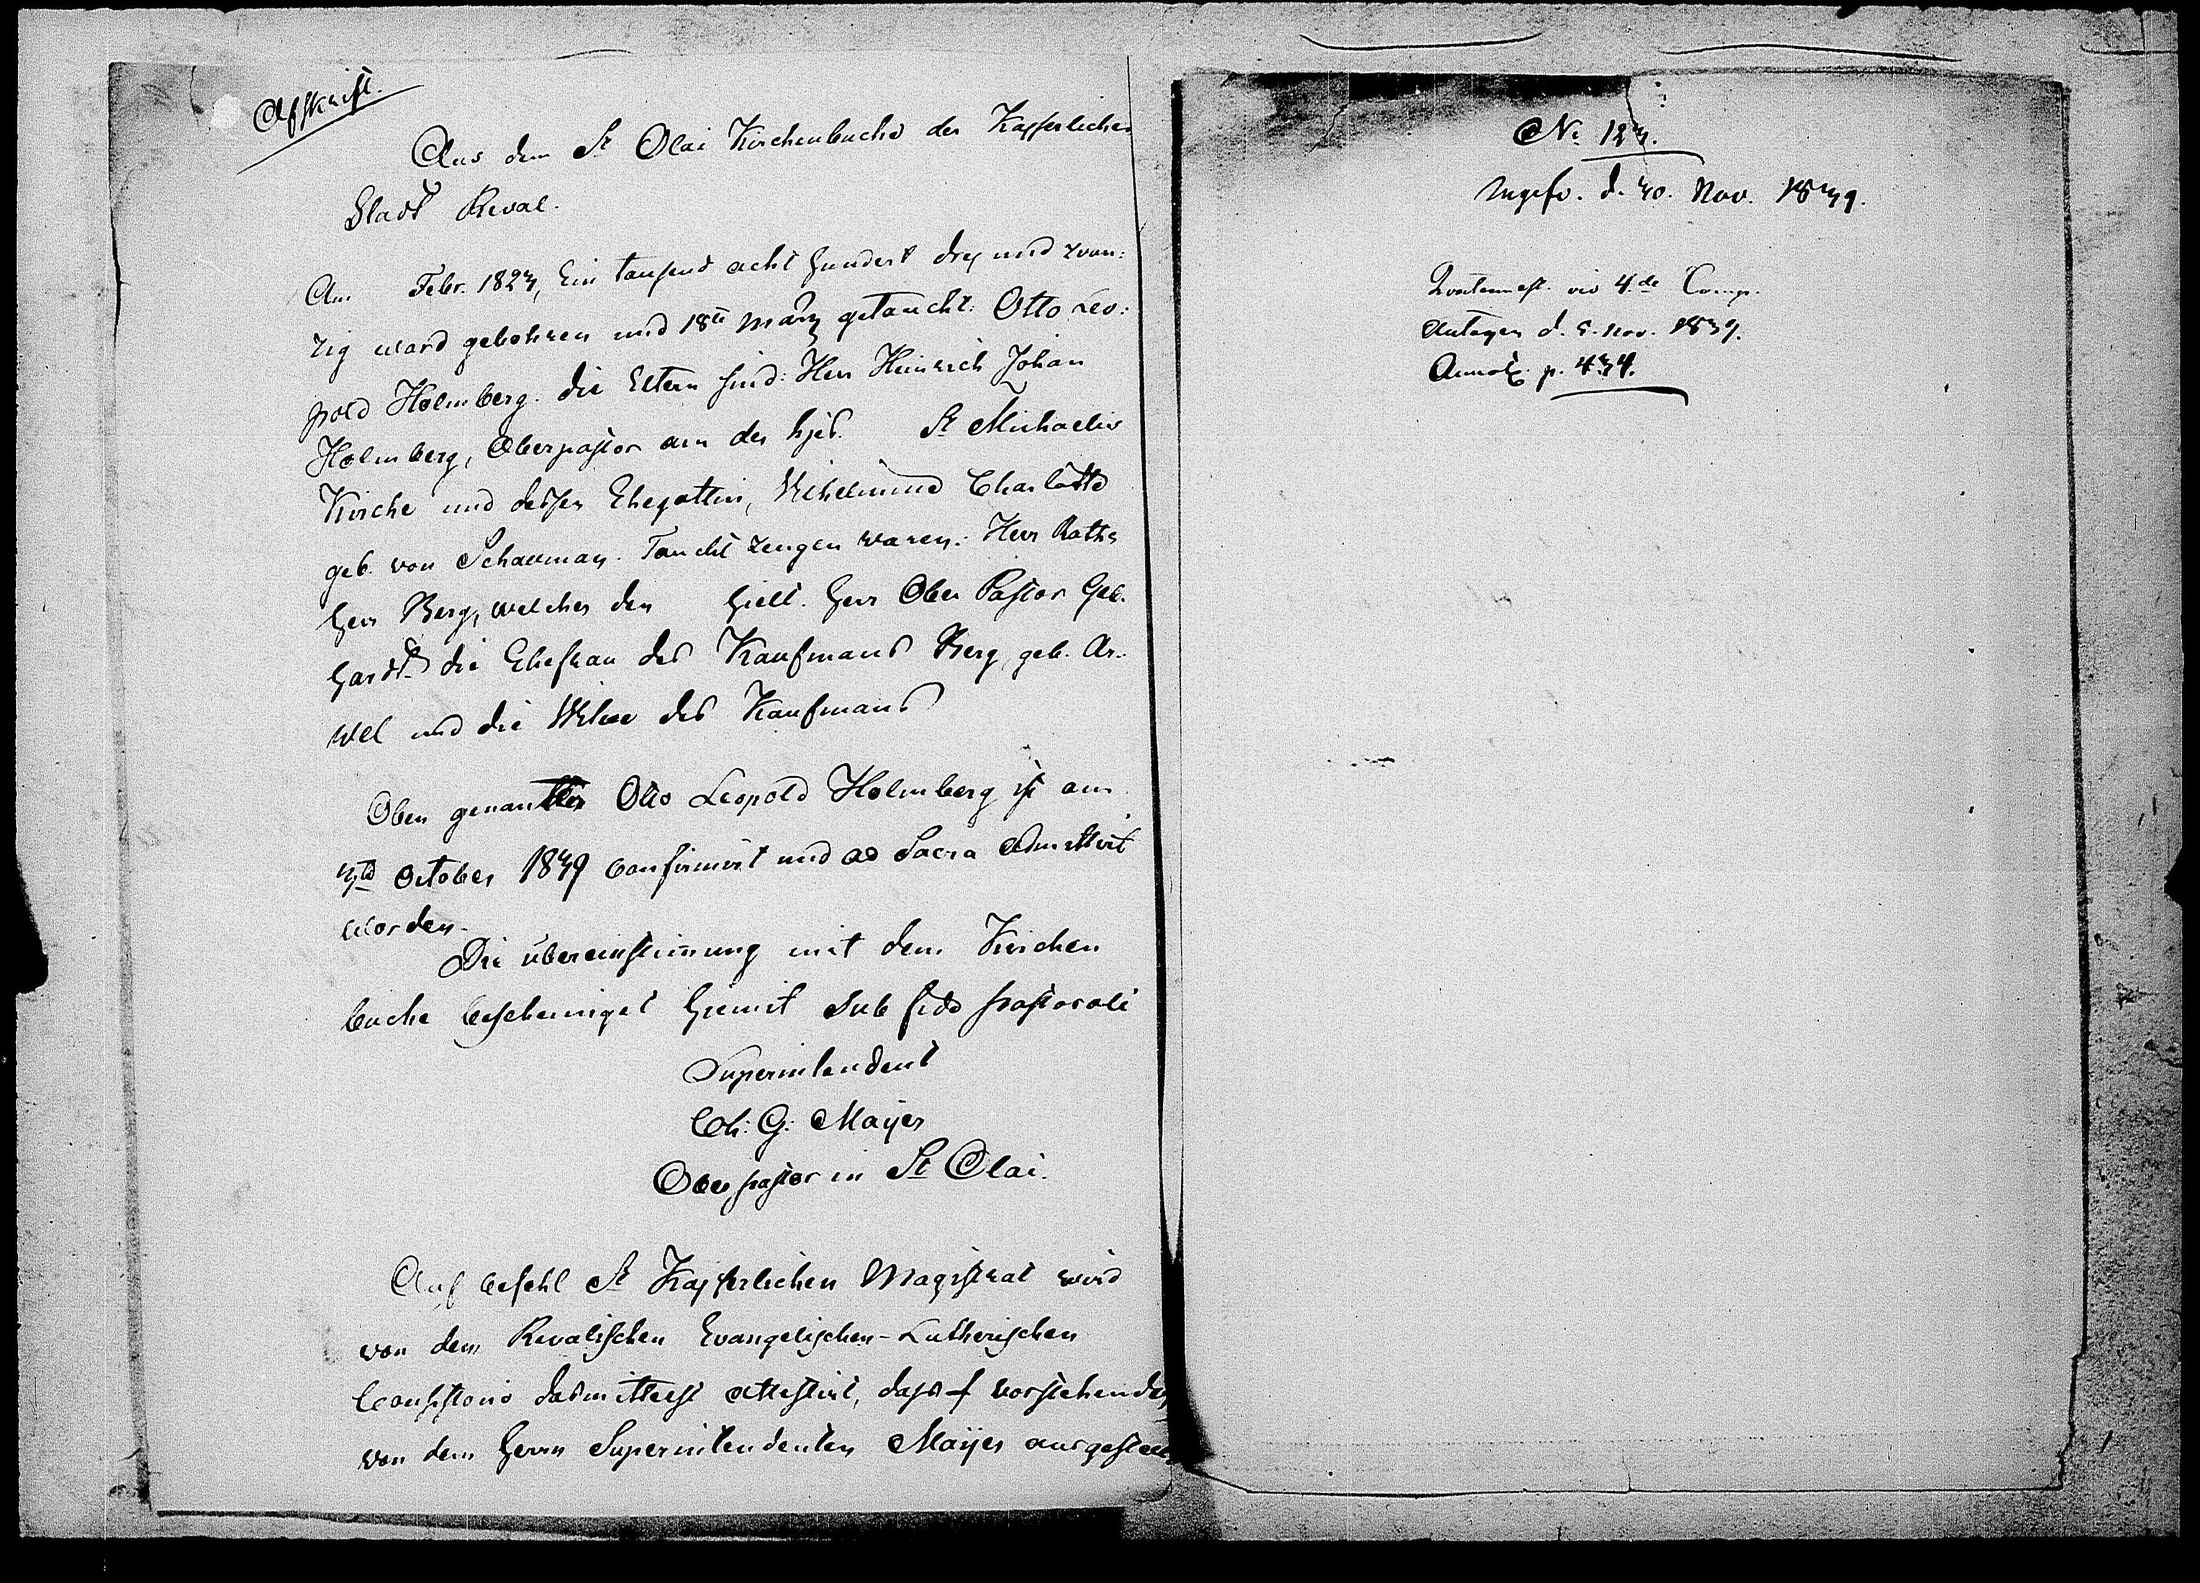 Afskrift.
Aus dem St Olai Kirchenbuche der Kayserlichen
Stadt Reval.
Am Febr. 1823, Ein tausend acht hundert drey und zwan:
zig ward gebohren und 18ten März getaucht: Otto Leo:
pold Holmberg. die Eltern sind: Herr Heinrich Johan
Holmberg, Oberpastor an der St Michaelis
Kirche und dessen Ehegattin, Wilhelmine Charlotte
geb. von Schauman. Taucht zeugen waren: Herr Raths
herr Berg, welcher den hielt. Herr Ober Pastor Geb.
hardt die Ehefrau des Kaufmans Berg, geb. Ar.
wel und die Witwe des Kaufmans
Oben genanter Otto Leopold Holmberg ist am
October 1839 confirmirt und ad Sacra admittirt
worden.
Die übereinstimung mit dem Kirchen
buche bescheiniget hiemit sub fide pastorali
Superintendent
Ch: G: Mayer
Oberpastor in St Olai.
Auf befehl Kayserlichen Magistrat wird
von dem Revalischen Evangelischen-Lutherischen
Consistorio desmittelst attestirt, dass vorstehendes
von dem Herrn Superintendenten Mayer ausgestell
No 123.
Ingifv. d. 30. Nov. 1839.
4.de Comp.
Antagen d. 5. nov. 1839.
p. 434.